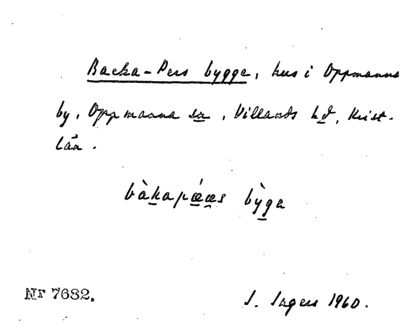 Backa-Pers bygge, hus i Oppmanna
by, Oppmanna sn, Villands hd, Krist.
län.
bàkapææs bỳge
Nr 7682.
S. 1960.